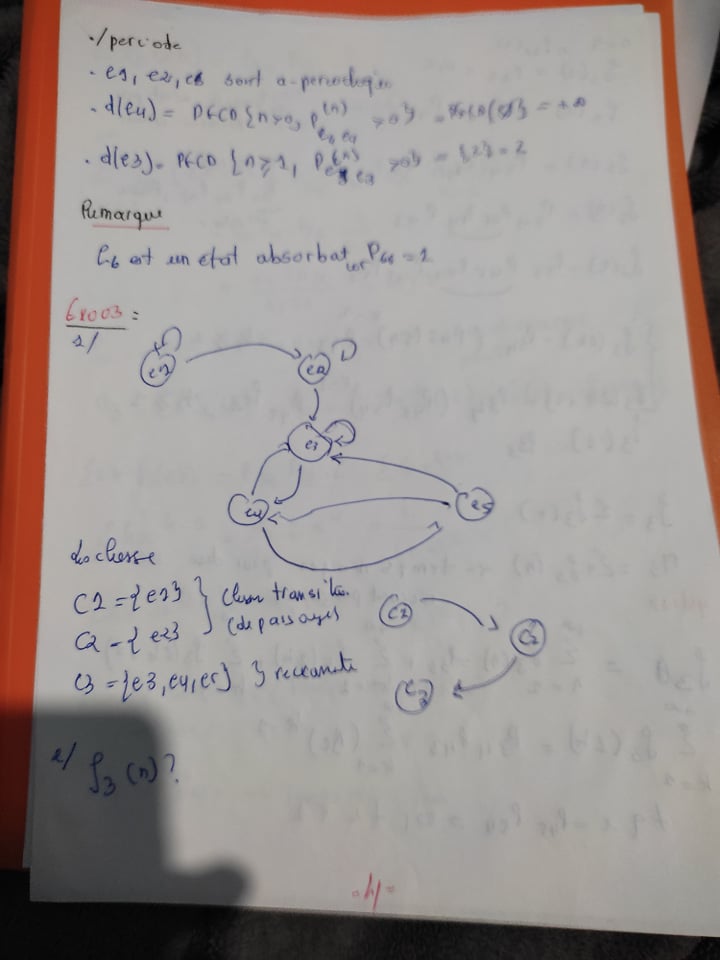 ./ periode
. e1, e2, e6 sont a-periodique
. d(e4) = PGCD {n>0, P(n) e4 e4 >0} = = +∞
. d(e3) = PGCD {n≥1, P(n) e3 e3 >0} = {2} = 2
Remarque
e6 est un état absorbat car P66 = 1
Exo03 :
1/
e1 e2
e3
e4 e5
Les classe
C1 = {e1} } classe transite.
C2 = {e2} (de passage)
C3 = {e3, e4, e5} } reccurente
C1 C2
C3
2/ f3 (n) ?
-4-